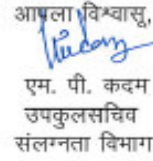 आपला विश्वासू,
एम. पी. कदम
उपकुलसचिव
संलग्नता विभाग